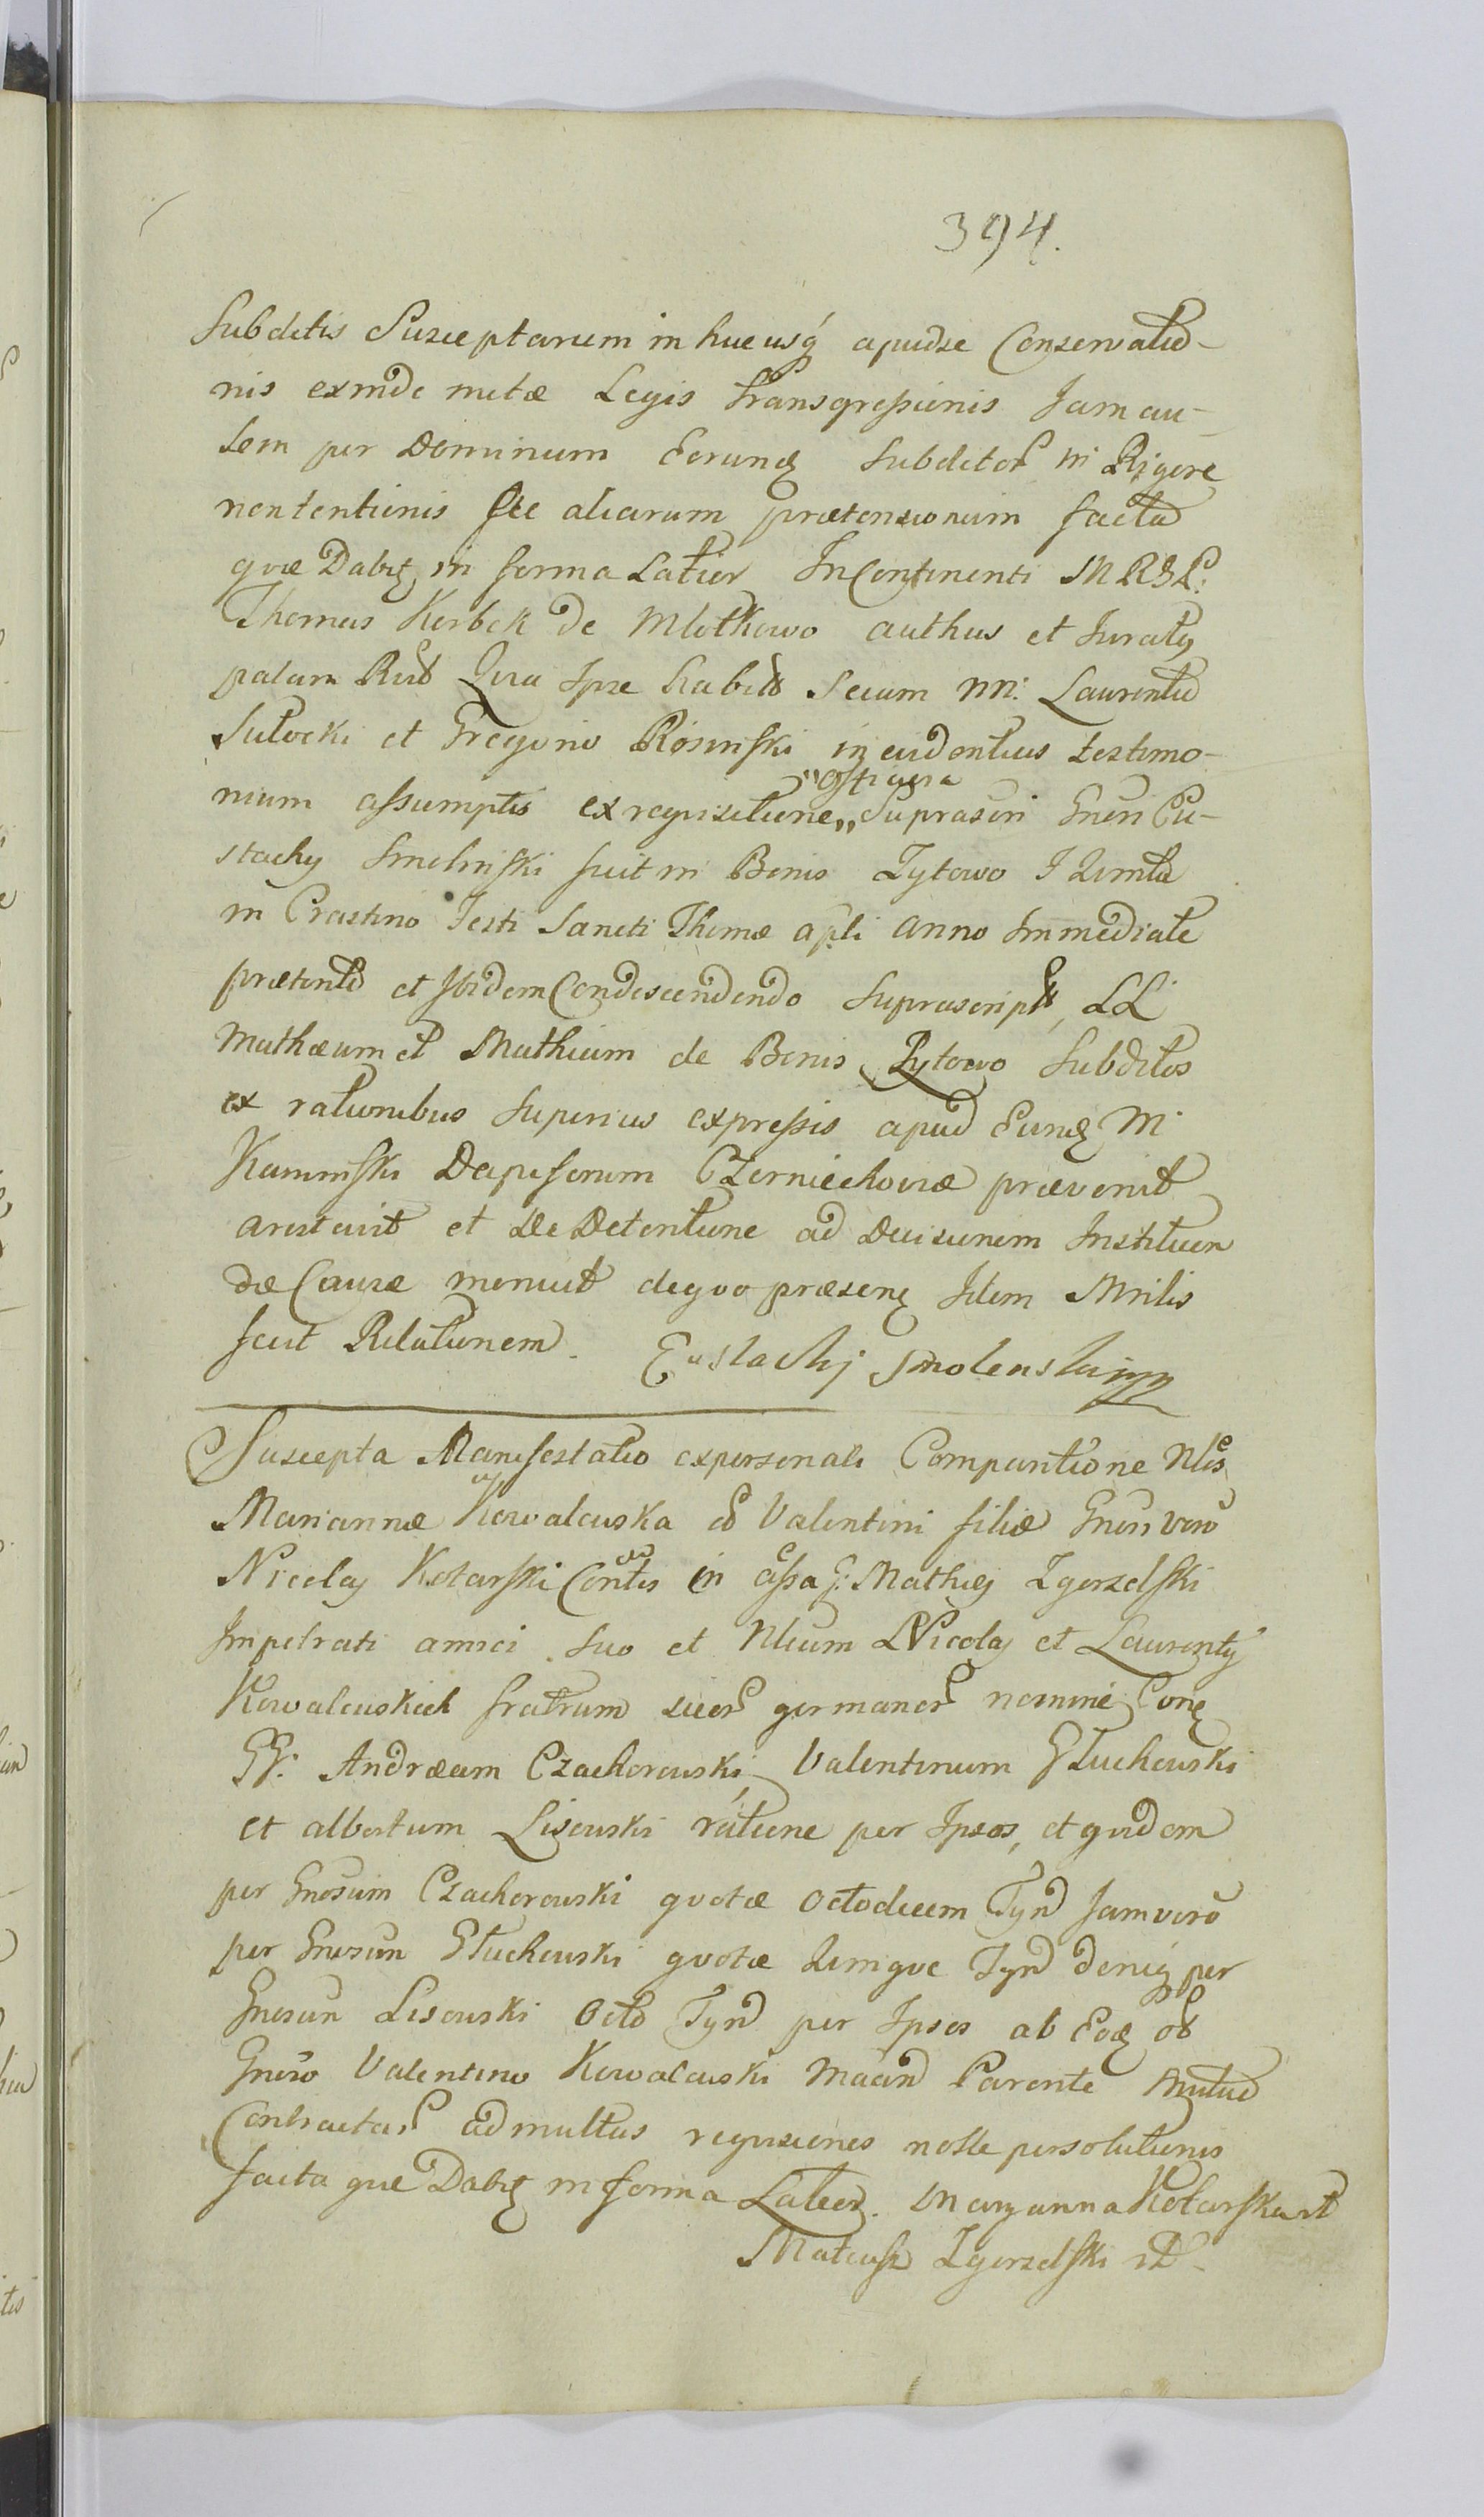 394.
Subditis Susceptarum in huc usq́ apud se Conservatio-
nis exinde metæ Legis transgressionis Jam au-
tem per Dominum Eorunđ Subditor̃ in Rigore
non tentionis Sæ aliarum prætensionum facta
quæ Dabit, in forma Latior InContinenti MRGL:
Thomas Korbek de Mlotkowo authus et Juratq
palam Rŭt Quia Ipse habitis Secum NN: Laurentio
Sulocki et Gregorio Rosinski in evidentius testimo-
"ostiaria
nium assumptis ex requisitione,, Suprascri Gnĕri Eu-
stachy Smolinski fuit in Bonis Tytowo F Quinta
in Crastino Festi Sancti Thomæ apĭi anno Immediate
prætento et Ibidem Condescendendo Suprascriptos, LL
Mathæum et Mathiam de Bonis Pytowo Subditos
ex rationibus superius expressis apud Eunđ M:
Kaminski Depressorum Czerniechoviæ prævenit
arestavit et de Detentione ad Decisionem Instituen
dæ Causæ monuit de quo præsens Idem Mrilis
fecit Relationem. Eustachj Smolenski mp
Suscepta Manifestatio ex personali Compantione Nlis
Mariannæ Kowalewska ol Valentini filiæ Gnĕri vero
Nicolaj Kotarski Contis in assa G: Mathiej Zgorzelski
Impetrati amici suo et Nlium Nicolaj et Laurentij
Kowalewskich fratrum suor̃ germanor̃ nomine Conđ
GG: Andræam Czachorowski, Valentinum Głuchowski
et albertum Lisowski ratione per Ipsos, et quidem
per Gnosum Czachorowski quotæ Octodecem Tyn̄ Jam vero
per Gnosum Głuchowski quotæ Quinque Tyn̄ deniq́ per
Gnosum Lisowski Octo Tyn̄ per Ipsos ab Eođ ol
Gnoso Valentino Kowalewski Maand Parente Mutuo
Contractar̃ ad multas requisiones nolle persolutionis
facta quæ Dabit in forma Latior. Maryanna Kotarska
Mateusz Zgorzelski